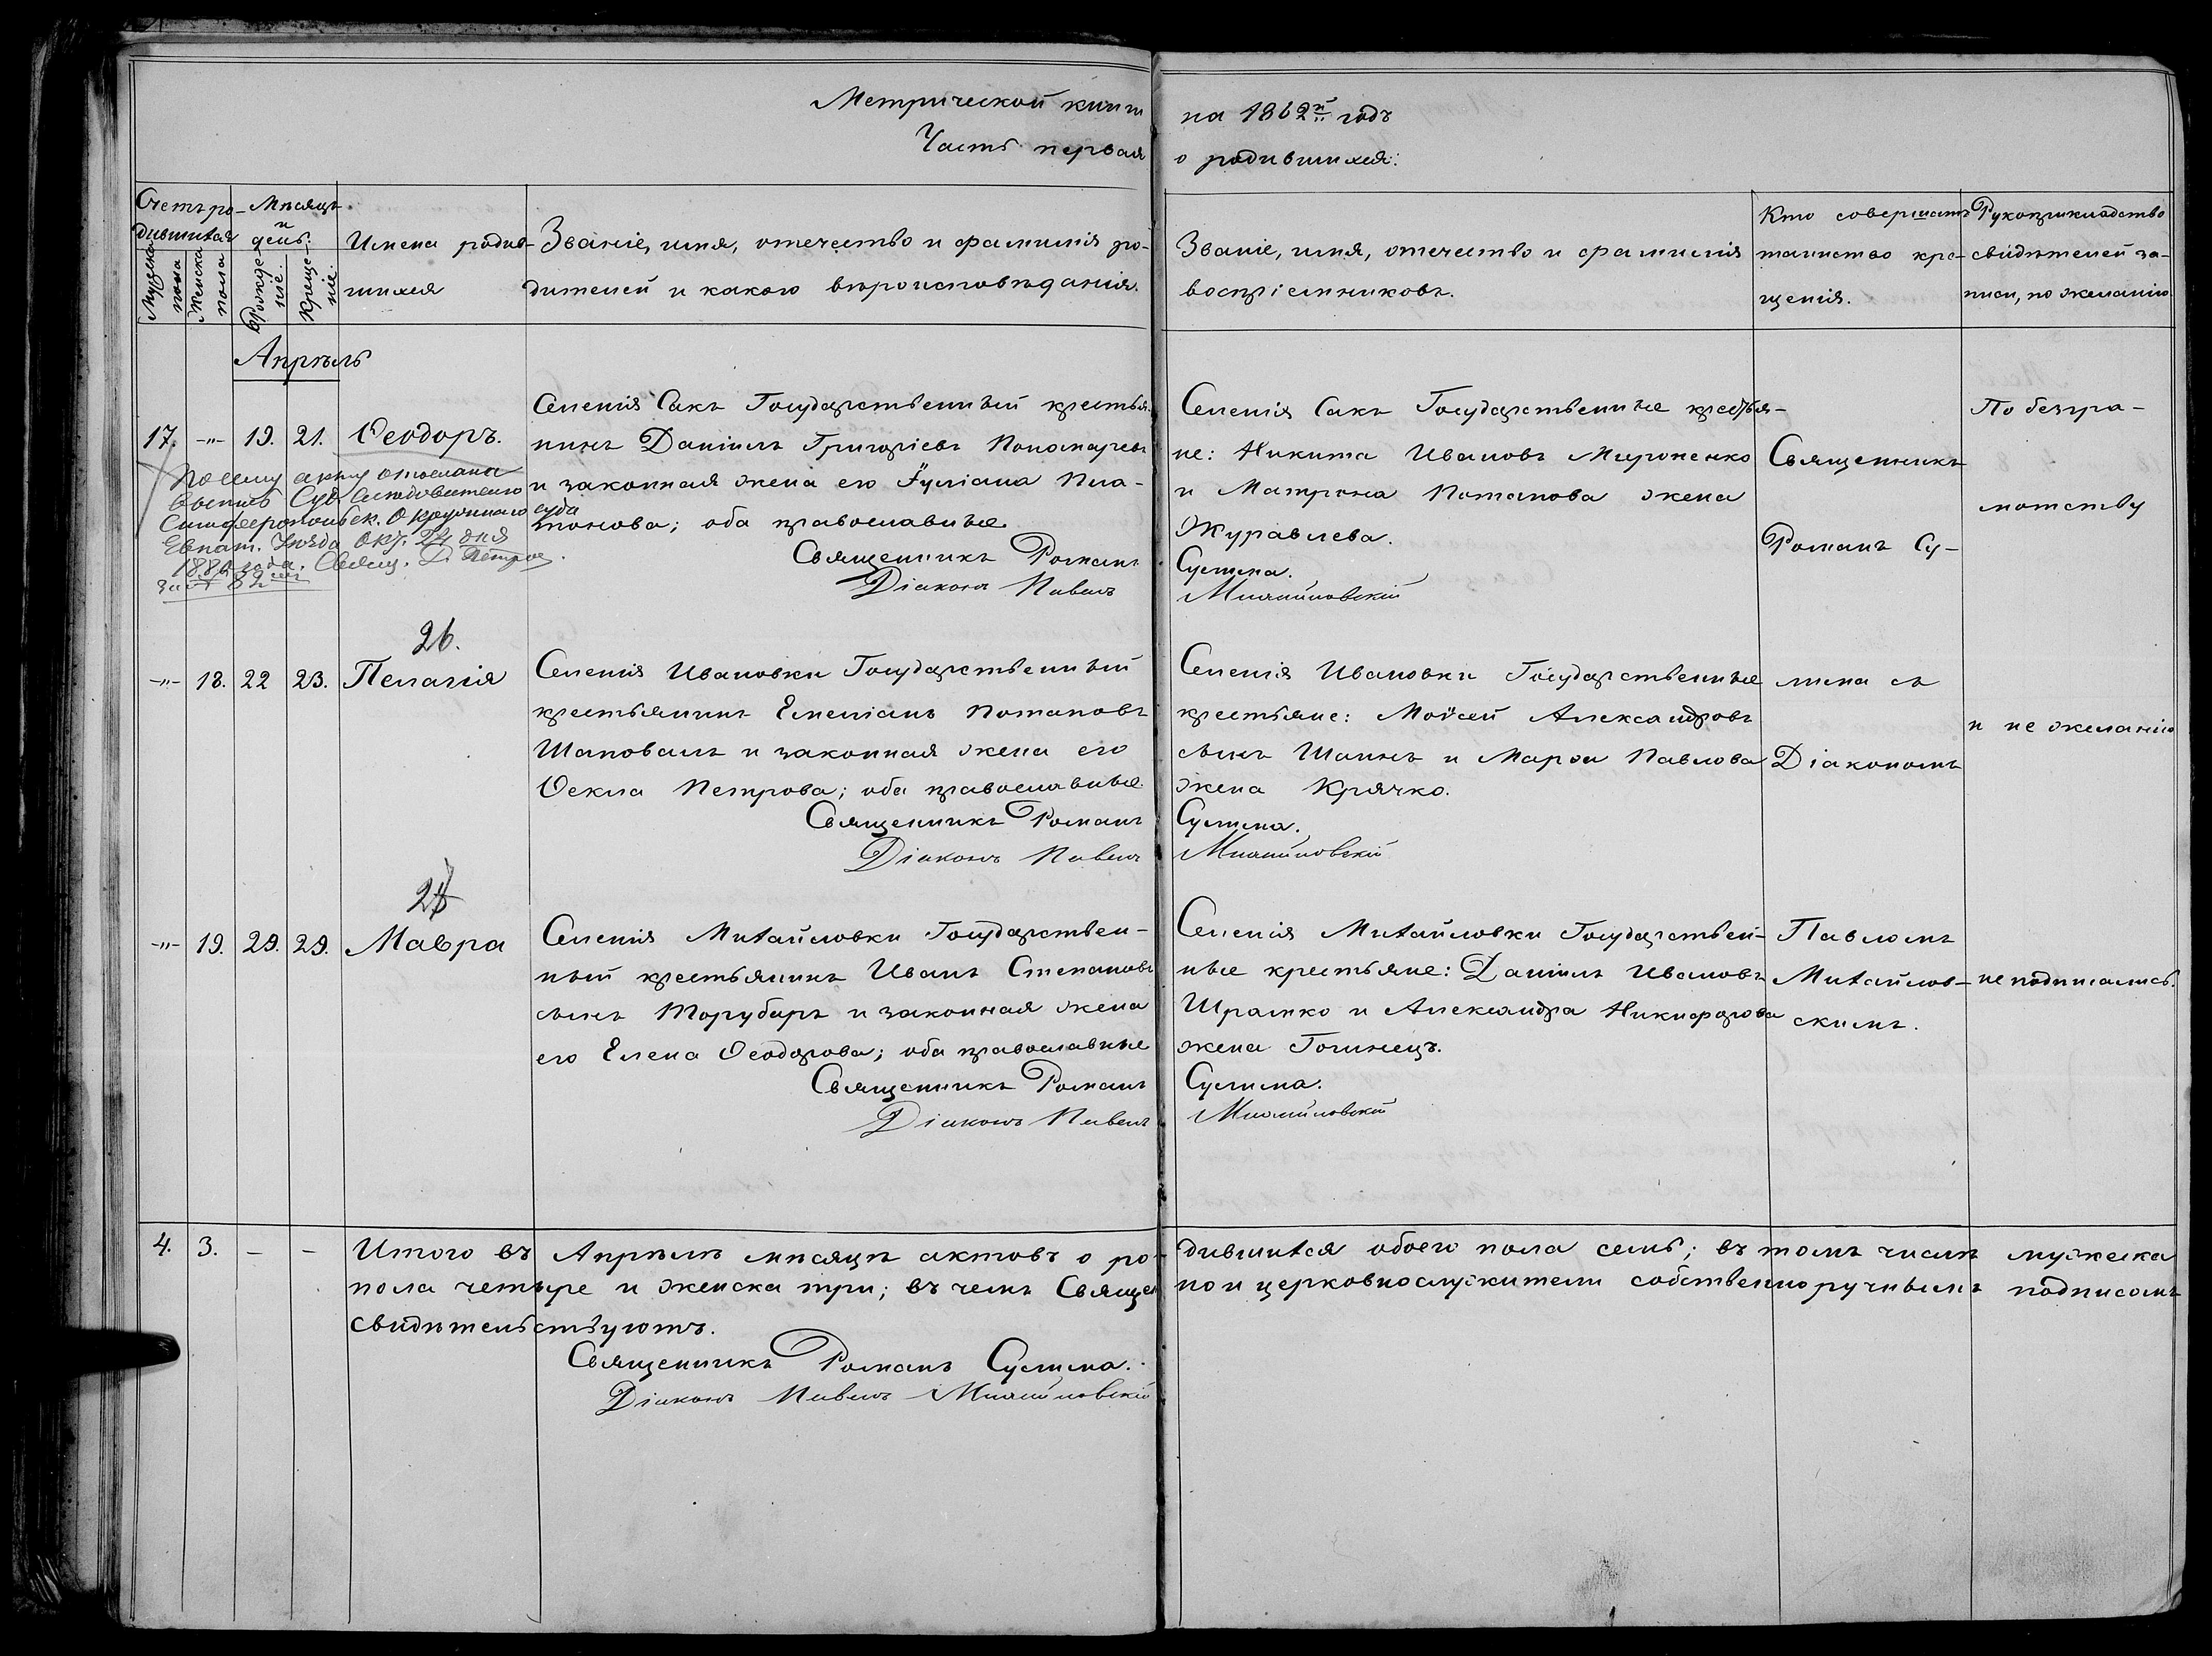 Метрической книги на 1862й годъ
Часть первая о родившихся:
Счетъ ро-
дившихся
Мужеска
пола
Женска
пола
Мѣсяцъ
и
день.
Рожде-
ніе.
Креще-
ніе.
Имена родив-
шихся
Званіе, имя, отечество и фамилія ро-
дителей и какого вѣроисповѣданія.
Званіе, имя, отечество и фамилія
воспріемниковъ.
Кто совершалъ
таинство кре-
щенія.
Рукоприкладство
свидѣтелей за-
писи, по желанію
Апрѣль
17. -"- 19. 21. Ѳеодоръ.
По сему акту отослана
выпись Суд. Слѣдователю
Симферопольск. Окружнаго суда
Евпат. Уѣзда Окт. 24 дня
188 года. Свящ. Д. Петров.
за № 82
Селенія Сакъ Государственный крестья-
нинъ Даніилъ Григоріевъ Пономаревъ
и законная жена его Іуліана Пла-
тонова; оба православные.
Священникъ Романъ
Діаконъ Павелъ
Селенія Сакъ Государственные крестья-
не: Никита Ивановъ Мироненко
и Матрона Потапова жена
Журавлева.
Сулима.
Михайловскій
Священникъ
Романъ Су-
По безгра-
мотству
26.
-"- 18. 22 23. Пелагія
Селенія Ивановки Государственный
крестьянинъ Емеліанъ Потаповъ
Шаповалъ и законная жена его
Ѳекла Петрова; оба православные.
Священникъ Романъ
Діаконъ Павелъ
Селенія Ивановки Государственные
крестьяне: Моѵсей Александровъ
сынъ Шаинъ и Марѳа Павлова
жена Крячко.
Сулима.
Михайловскій
лима съ
Діакономъ
и не желанію
-"- 19. 29. 29. Мавра
Селенія Михайловки Государствен-
ный крестьянинъ Иванъ Степановъ
сынъ Торубаръ и законная жена
его Елена Ѳеодорова; оба православные
Священникъ Романъ
Діаконъ Павелъ
Селенія Михайловки Государствен-
ные крестьяне: Даніилъ Ивановъ
Шрамко и Александра Никифорова
жена Голинецъ.
Сулима.
Михайловскій
Павломъ
Михайлов-
скимъ.
не подписались.
4. 3. - - Итого въ Апрѣлѣ мѣсяцѣ актовъ о родившихся обоего пола семь; въ томъ числѣ мужеска
пола четыре и женска три; въ чемъ Священно и церковнослужители собственноручнымъ подписомъ
свидѣтельствуютъ.
Священникъ Романъ Сулима.
Діаконъ Павелъ Михайловскій